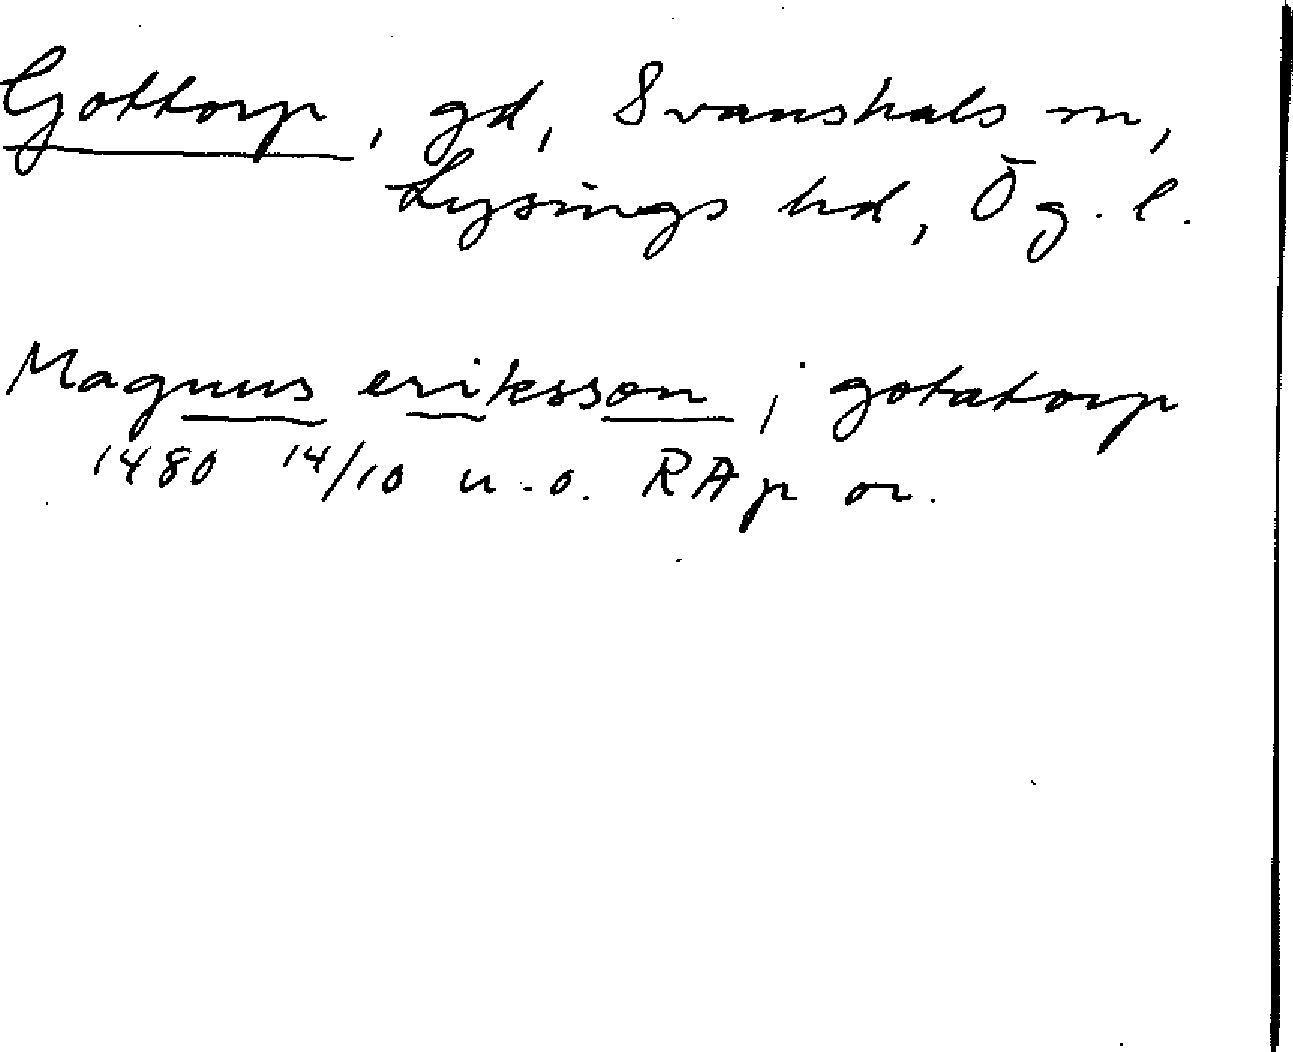 Gottorp, gd, Svanshals sn,
Lysings hd, Ög. l.
Magnus eriksson j gotatorp
1480 14/10 u.o. RAp or.